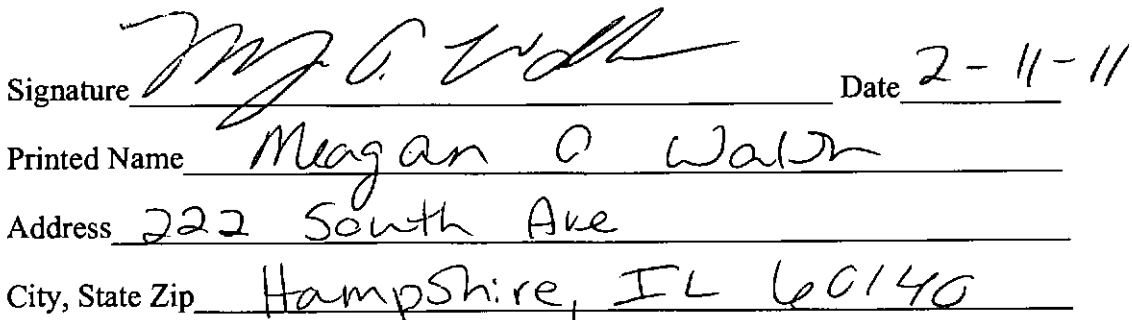 Signature Date 2-11-11
Printed Name Meagan O Walsh
Address 222 South Ave
City, State Zip Hampshire, IL 60140